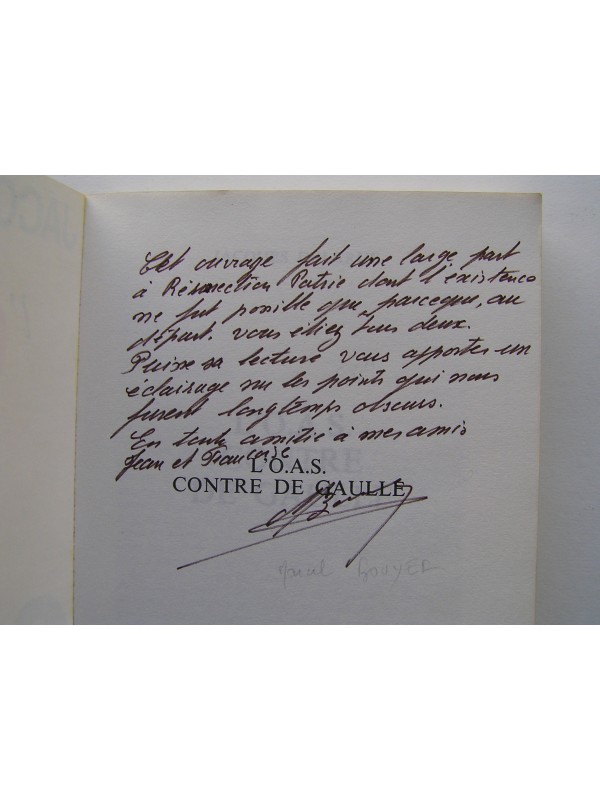 JACQ
Cet ouvrage fait une large part
à Résurrection Patrie dont l'existence
ne fut possible que parceque, au
départ, vous étiez tous deux.
Puisse sa lecture vous apporter un
éclairage sur les points qui nous
furent longtemps obscurs.
En toute amitié à mes amis
Jean et Françoise
L'O.A.S.
CONTRE DE GAULLE
Marcel BOUYER